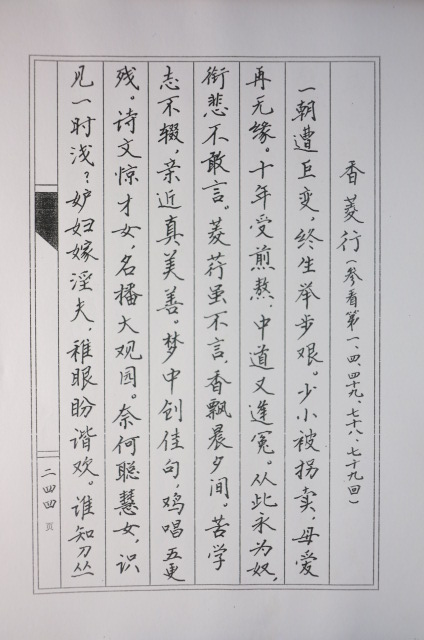 香菱行（参看第一、四、四十九、七十八、七十九回）
一朝遭巨变，终生举步艰。少小被拐卖，母爱
再无缘。十年受煎熬，中道又逢冤。从此永为奴，
衔悲不敢言。菱荇虽不言，香飘晨夕间。苦学
志不辍，亲近真美善。梦中创佳句，鸡唱五更
残。诗文惊才女，名播大观园。奈何聪慧女，识
见一时浅？妒妇嫁淫夫，稚眼盼谐欢。谁知刀丛
二四四页